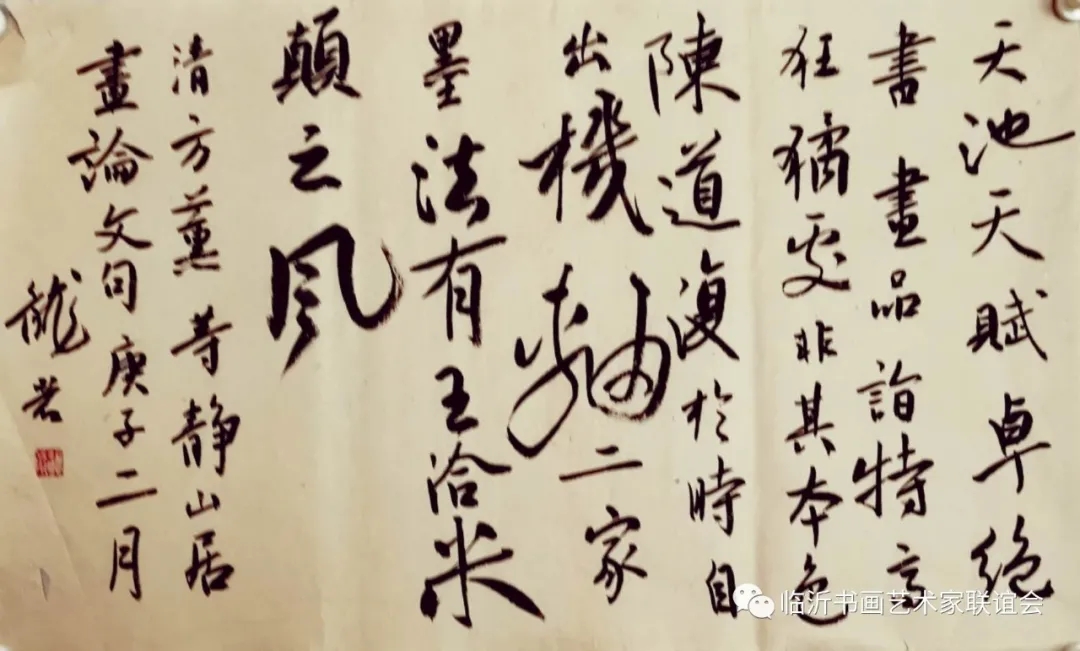 天池天賦卓絶
書畫品詣特高
狂獝處非其本色
陳道復於時自
出機軸二家
墨法有王洽米
顛云風
清方薰等静山居
畫論文句庚子二月
龍若
临沂书画艺术家联谊会